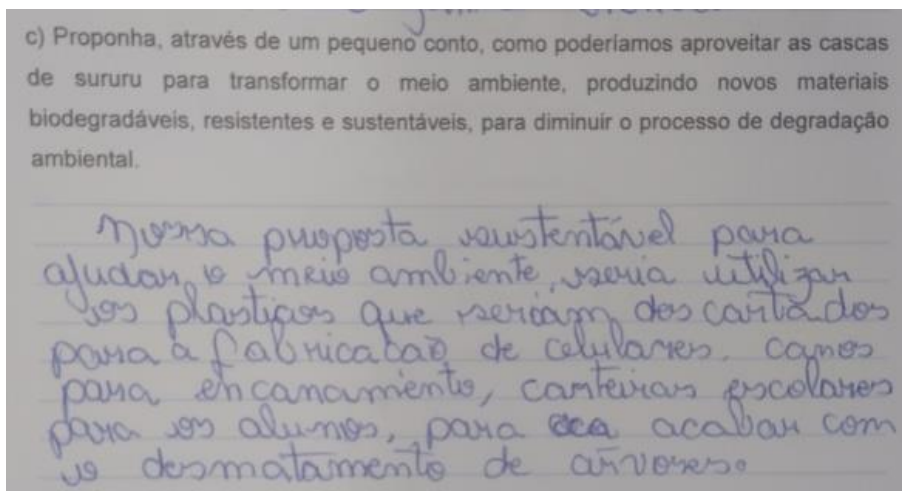 c) Proponha, através de um pequeno conto, como poderíamos aproveitar as cascas
de sururu para transformar o meio ambiente, produzindo novos materiais
biodegradáveis, resistentes e sustentáveis, para diminuir o processo de degradação
ambiental.
Nossa proposta sustentável para
ajudar o meio ambiente, seria utilizar
os plastigos que seriam descartados
para a fabricacaõ de celulares. canos
para encanamento, carteiras escolares
para os alunos, para acabar com
o desmatamento de árvores.